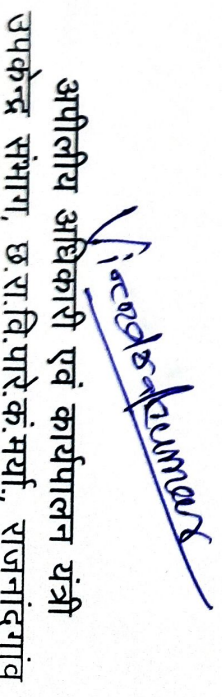 Virendra Kumar
अपीलीय अधिकारी एवं कार्यपालन यंत्री
उपकेन्द्र संभाग, छ.रा.वि.पारे.कं.मर्या., राजनांदगांव